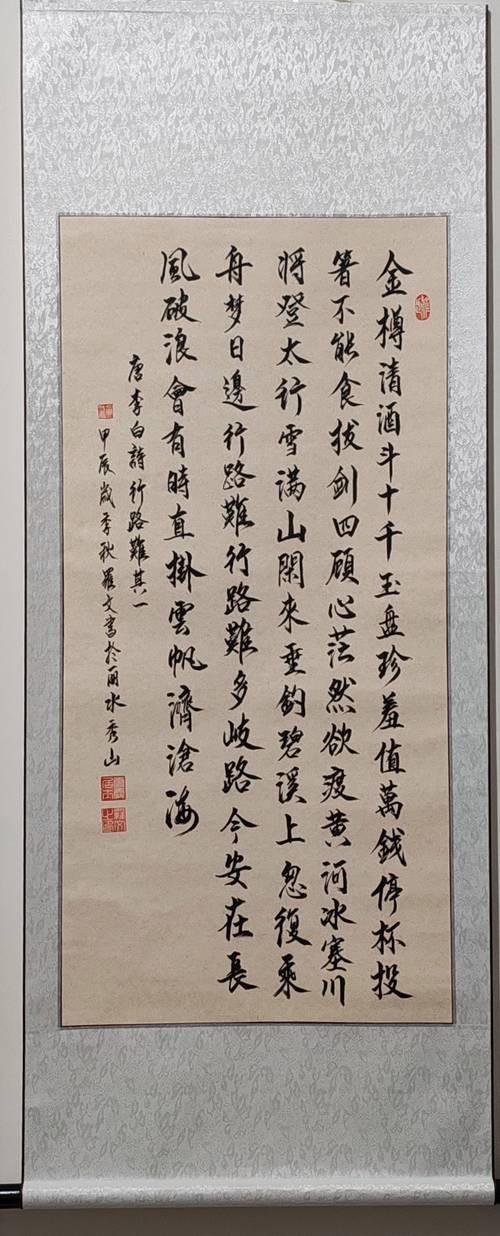 金樽清酒斗十千玉盘珍羞值萬錢停杯投
箸不能食拔劍四顧心茫然欲渡黄河冰塞川
将登太行雪满山閑來垂釣碧溪上忽復乘
舟梦日邊行路難行路難多岐路今安在長
風破浪會有時直掛雲帆濟滄海
唐李白詩行路難其一
甲辰歲季秋羅文書於丽水秀山